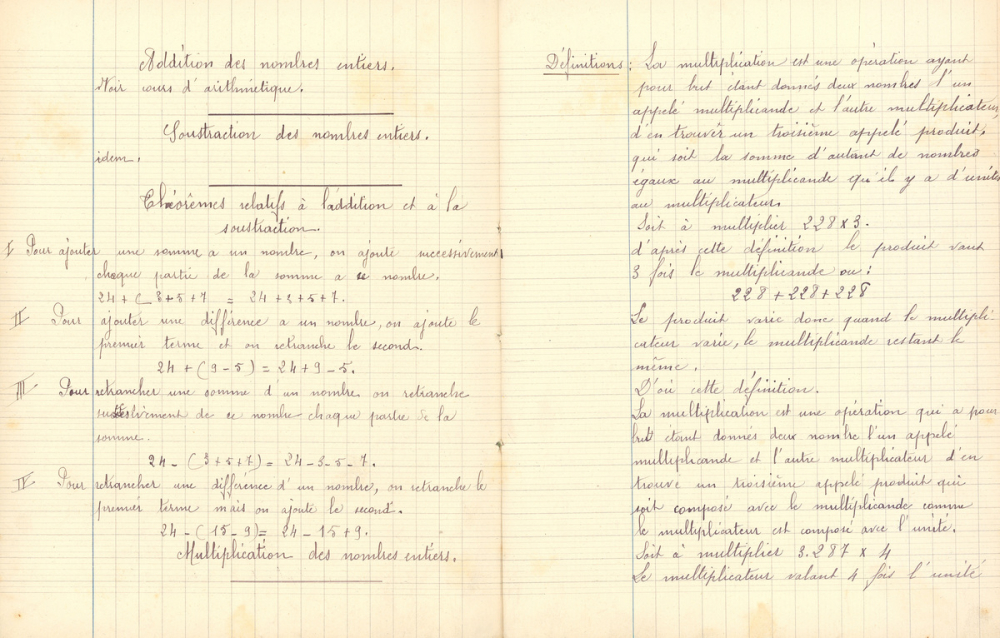 Addition des nombres entiers.
Voir cours d'arithmétique.
Soustraction des nombres entiers.
idem.
Théorèmes relatifs à l'addition et à la
soustraction.
I Pour ajouter une somme a un nombre, on ajoute successivement
chaque partie de la somme a ce nombre.
24 + ( 3+5+7 = 24+3+5+7.
II Pour ajouter une différence a un nombre, on ajoute le
premier terme et on retranche le second.
24 + (9-5) = 24+9-5.
III Pour retrancher une somme d'un nombre on retranche
successivement de ce nombre chaque partie de la
somme.
24 - (3+5+7) = 24-3-5-7.
IV Pour retrancher une différence d'un nombre, on retranche le
premier terme mais on ajoute le second.
24 - (15-9) = 24-15+9.
Multiplication des nombres entiers.
Définitions : La multiplication est une opération ayant
pour but étant donnés deux nombres l'un
appelé multiplicande et l'autre multiplicateur
d'en trouver un troisième appelé produit,
qui soit la somme d'autant de nombres
égaux au multiplicande qu'il y a d'unités
au multiplicateur.
Soit à multiplier 228 x 3.
d'après cette définition le produit vaut
3 fois le multiplicande ou :
228 + 228 + 228
Le produit varie donc quand le multipli
cateur varie, le multiplicande restant le
même.
D'où cette définition.
La multiplication est une opération qui a pour
but étant donnés deux nombre l'un appelé
multiplicande et l'autre multiplicateur d'en
trouvé un troisième appelé produit qui
soit composé avec le multiplicande comme
le multiplicateur est composé avec l'unité.
Soit à multiplier 3.287 x 4
Le multiplicateur valant 4 fois l'unité